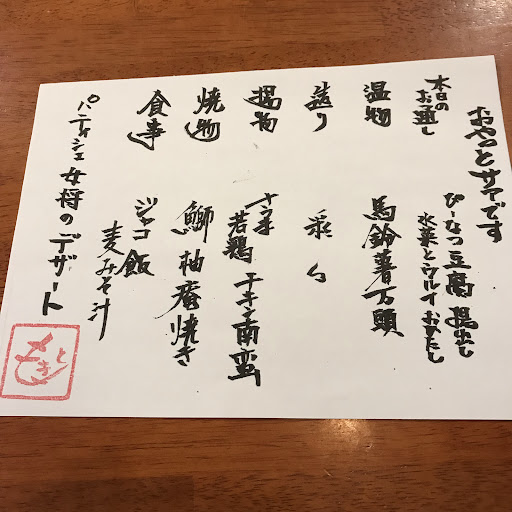 おやっとサアです
本日の
お通し
ぴーなつ豆腐 揚出し
水菜とウルイおひたし
温物 馬鈴薯万頭
造り
揚物
若鶏 チキン南蛮
焼物 鰤 柚庵焼き
食事 ジャコ飯
麦みそ汁
パティシェ女将のデザート